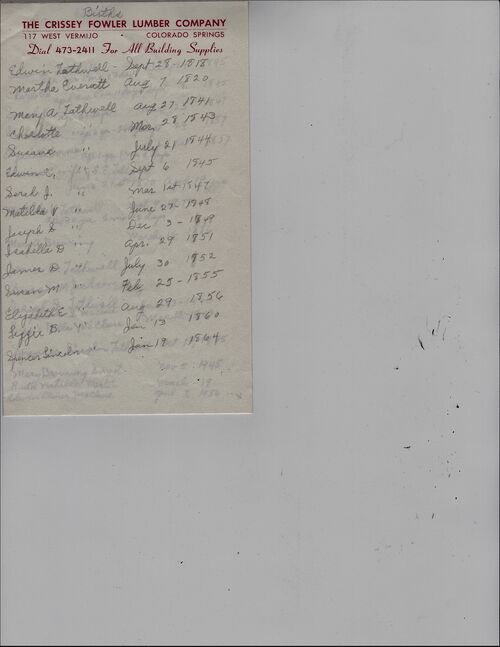 Births
THE CRISSEY FOWLER LUMBER COMPANY
117 WEST VERMIJO COLORADO SPRINGS
Dial 473-2411 For All Building Supplies
Edwin Tathwell - Sept 28 - 1818
Martha Everatt Aug 7 1820
Mary A Tathwell Aug 27 1841
Charlotte " Mar 28 1843
Susana " July 21 1844
Edwin E. " Sept 6 1845
Sarah J. " Mar 1st 1847
Matilda V " June 27 - 1848
Joseph S " Dec 3 - 1849
Isabella D " Apr. 29 1851
James D. July 30 1852
Susan M " Feb 25 - 1855
Elizabeth E Aug 29 - 1856
Lizzie B. " Jan 13 1860
Spencer Lincoln Jan 19 1864
Nov 5 1945
Ruth